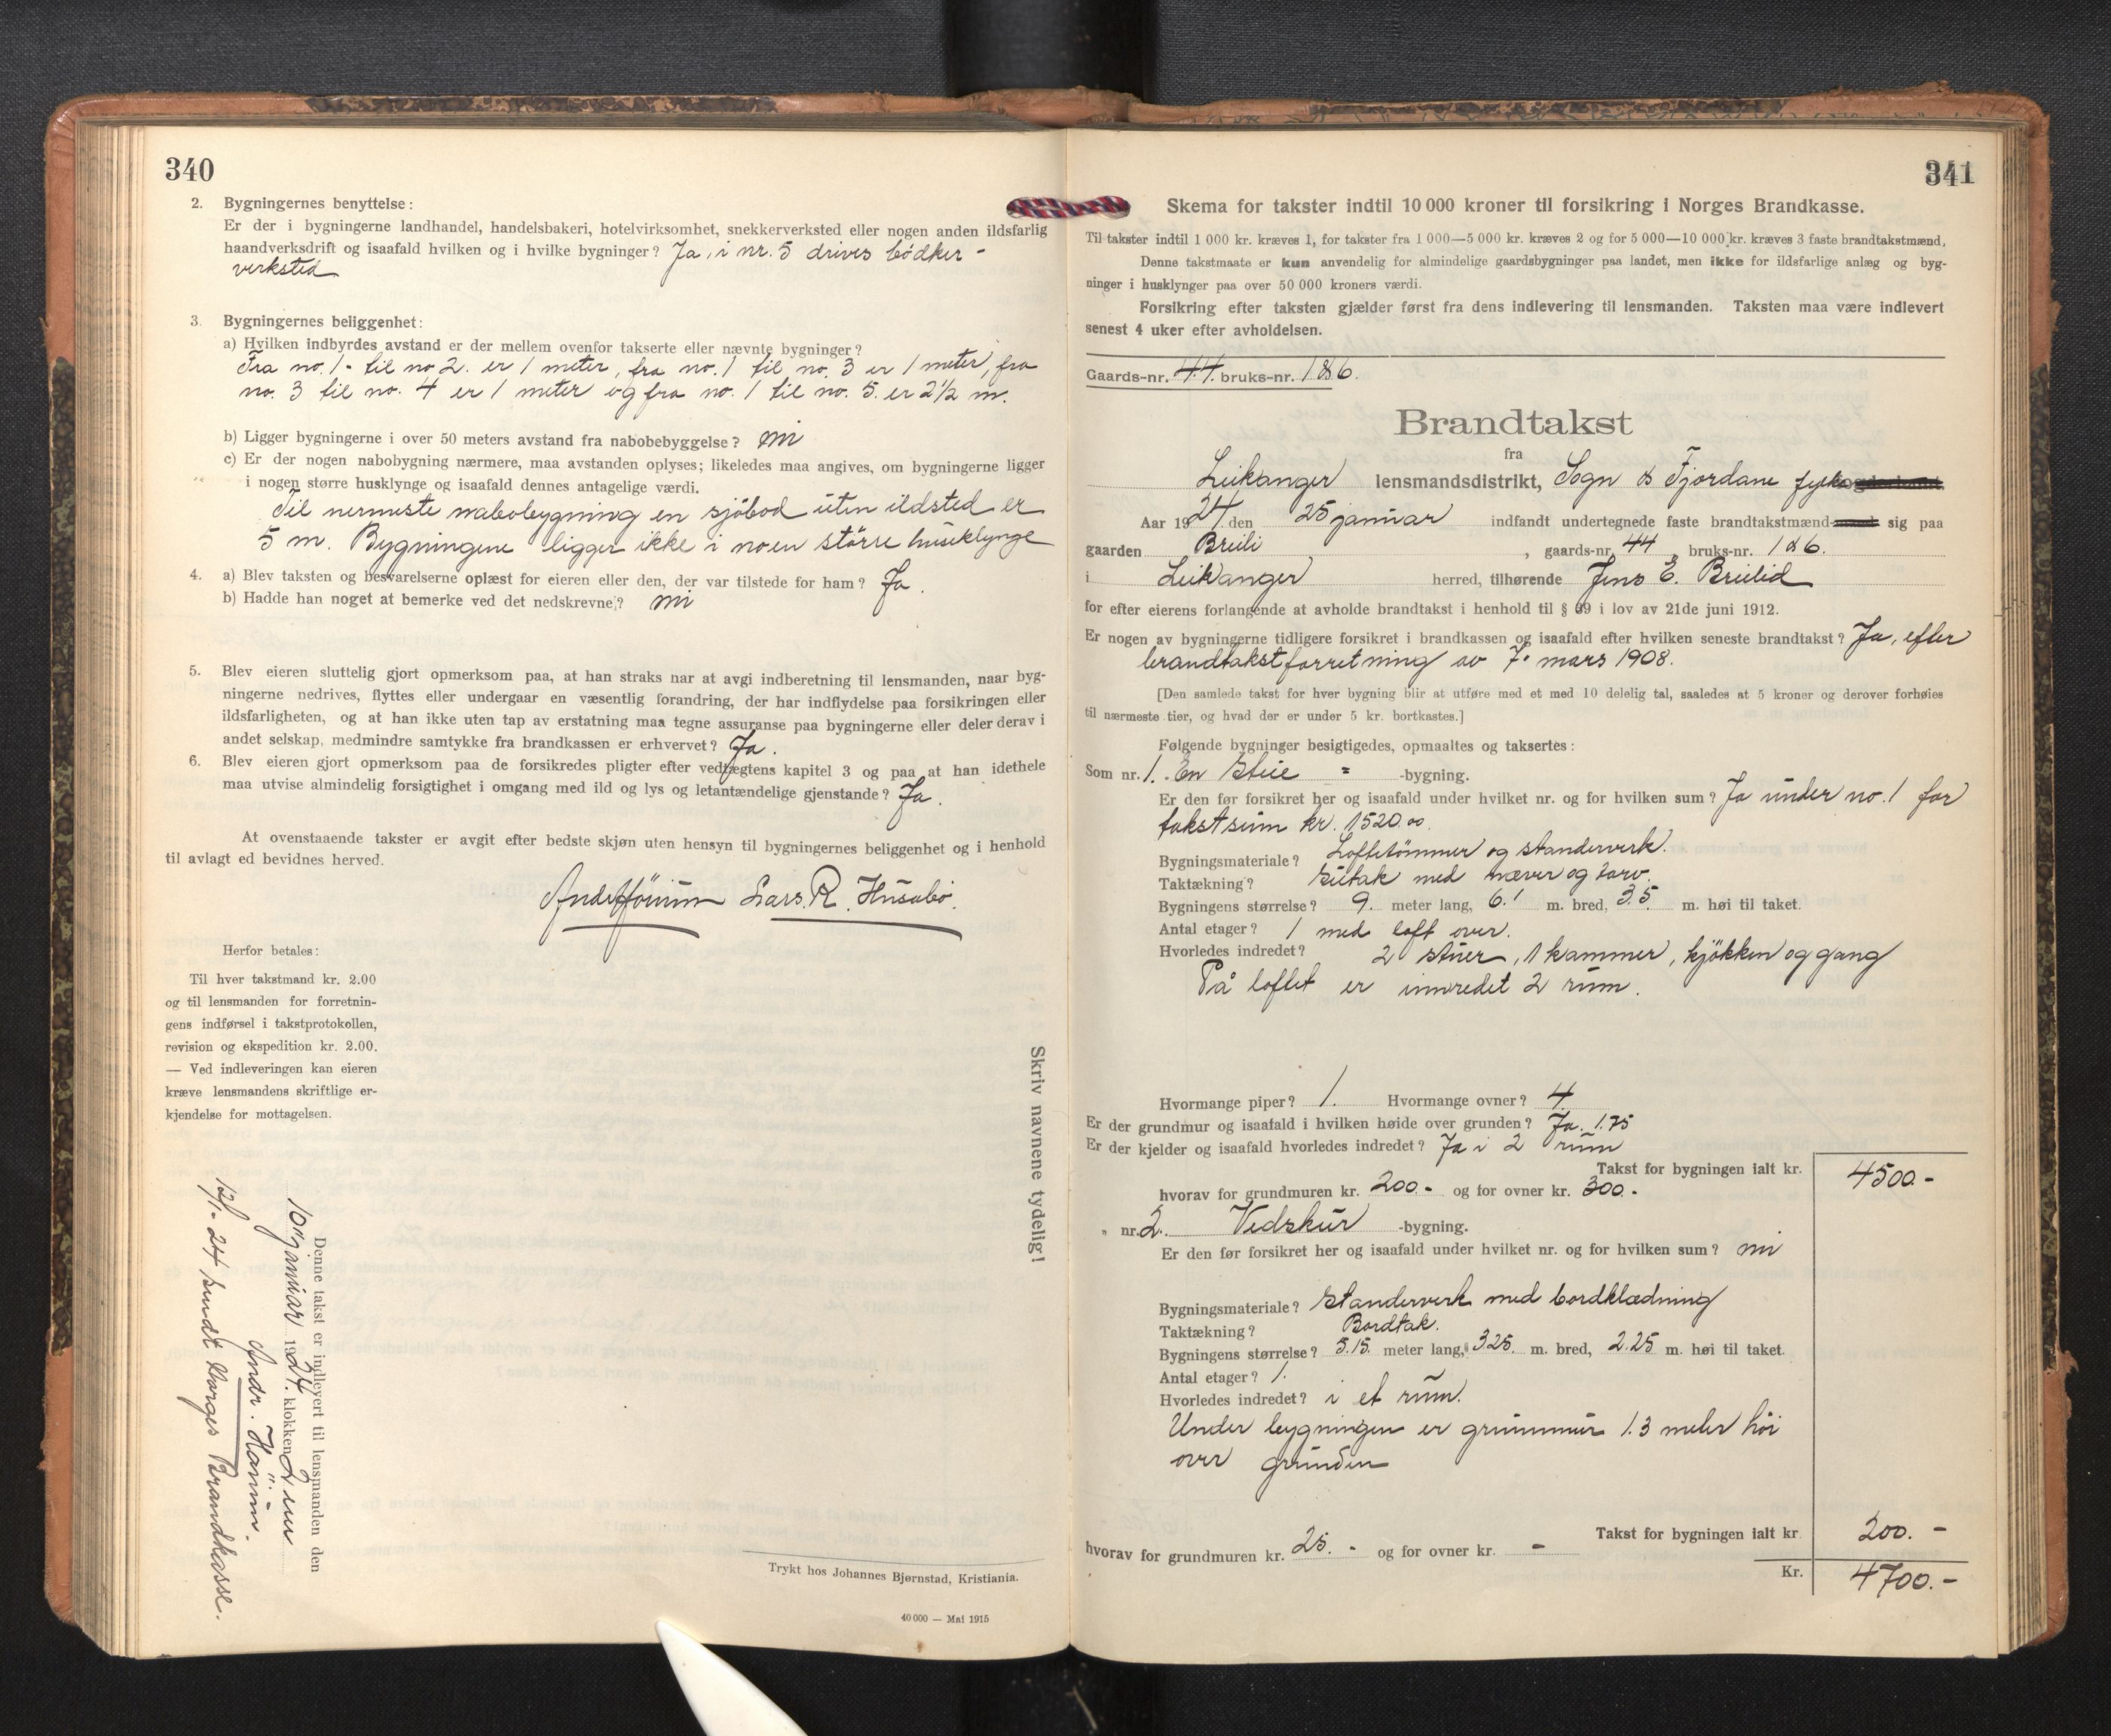 340
2. Bygningernes benyttelse:
Er der i bygningerne landhandel, handelsbakeri, hotelvirksomhet, snekkerverksted eller nogen anden ildsfarlig
haandverksdrift og isaafald hvilken og i hvilke bygninger? Ja, i nr. 5 drives bödker-
verksted
3. Bygningernes beliggenhet:
a) Hvilken indbyrdes avstand er der mellem ovenfor takserte eller nævnte bygninger?
Fra no. 1 - til no 2. er 1 meter, fra no. 1 til no. 3 er 1 meter, fra
no. 3 til no. 4 er 1 meter og fra no. 1 til no. 5. er 2½ m.
b) Ligger bygningerne i over 50 meters avstand fra nabobebyggelse? nei
c) Er der nogen nabobygning nærmere, maa avstanden oplyses; likeledes maa angives, om bygningerne ligger
i nogen større husklynge og isaafald dennes antagelige værdi.
Til nermeste nabobygning en sjöbod uten ildsted er
5 m. Bygningene ligger ikke i noen större husklynge
4. a) Blev taksten og besvarelserne oplæst for eieren eller den, der var tilstede for ham? Ja.
b) Hadde han noget at bemerke ved det nedskrevne? nei
5. Blev eieren sluttelig gjort opmerksom paa, at han straks har at avgi indberetning til lensmanden, naar byg-
ningerne nedrives, flyttes eller undergaar en væsentlig forandring, der har indflydelse paa forsikringen eller
ildsfarligheten, og at han ikke uten tap av erstatning maa tegne assuranse paa bygningerne eller deler derav i
andet selskap, medmindre samtykke fra brandkassen er erhvervet? Ja.
6. Blev eieren gjort opmerksom paa de forsikredes pligter efter vedtægtens kapitel 3 og paa at han idethele
maa utvise almindelig forsigtighet i omgang med ild og lys og letantændelige gjenstande? Ja.
At ovenstaaende takster er avgit efter bedste skjøn uten hensyn til bygningernes beliggenhet og i henhold
til avlagt ed bevidnes herved.
Lars. R. Husabö.
Herfor betales:
Til hver takstmand kr. 2.00
og til lensmanden for forretnin-
gens indførsel i takstprotokollen,
revision og ekspedition kr. 2.00.
— Ved indleveringen kan eieren
kræve lensmandens skriftlige er-
kjendelse for mottagelsen.
Skriv navnene tydelig!
Denne takst er indlevert til lensmanden den
10 januar 1924. klokken 2 em
Andr.
12/1-24 sendt Norges Brandkasse.
Trykt hos Johannes Bjørnstad, Kristiania.
40 000 — Mai 1915
341
Skema for takster indtil 10 000 kroner til forsikring i Norges Brandkasse.
Til takster indtil 1 000 kr. kræves 1, for takster fra 1 000—5 000 kr. kræves 2 og for 5 000—10 000 kr. kræves 3 faste brandtakstmænd,
Denne takstmaate er kun anvendelig for almindelige gaardsbygninger paa landet, men ikke for ildsfarlige anlæg og byg-
ninger i husklynger paa over 50 000 kroners værdi.
Forsikring efter taksten gjælder først fra dens indlevering til lensmanden. Taksten maa være indlevert
senest 4 uker efter avholdelsen.
Gaards-nr. 44. bruks-nr. 1&6.
Brandtakst
fra
Leikanger lensmandsdistrikt, Sogn & Fjordane fylke
Aar 1924 den 25 januar indfandt undertegnede faste brandtakstmænd sig paa
gaarden Breili, gaards-nr. 44, bruks-nr. 1&6.
i Leikanger herred, tilhørende Jens E. Breilid
for efter eierens forlangende at avholde brandtakst i henhold til § 39 i lov av 21de juni 1912.
Er nogen av bygningerne tidligere forsikret i brandkassen og isaafald efter hvilken seneste brandtakst? Ja, efter
brandtakstforretning av 7. mars 1908.
[Den samlede takst for hver bygning blir at utføre med et med 10 delelig tal, saaledes at 5 kroner og derover forhøies
til nærmeste tier, og hvad der er under 5 kr. bortkastes.]
Følgende bygninger besigtigedes, opmaaltes og taksertes:
Som nr. 1. En Stue = -bygning.
Er den før forsikret her og isaafald under hvilket nr. og for hvilken sum? Ja under no. 1 for
takstsum kr. 1520.00.
Bygningsmateriale? Loftetömmer og standerverk.
Taktækning? Sutak med næver og torv.
Bygningens størrelse? 9. meter lang, 6.1 m. bred, 3.5 m. høi til taket.
Antal etager? 1 med loft over.
Hvorledes indredet? 2 stuer, 1 kammer, kjökken og gang
På loftet er innredet 2 rum.
Hvormange piper? 1. Hvormange ovner? 4
Er der grundmur og isaafald i hvilken høide over grunden? Ja. 1.75
Er der kjelder og isaafald hvorledes indredet? Ja i 2 rum
Takst for bygningen ialt kr. 4500.-
hvorav for grundmuren kr. 200.- og for ovner kr. 300.-
„ nr. 2. Vedskur -bygning.
Er den før forsikret her og isaafald under hvilket nr. og for hvilken sum? nei
Bygningsmateriale? Standerverk med bordklædning
Taktækning? Bordtak.
Bygningens størrelse? 5.15. meter lang, 3.25. m. bred, 2.25 m. høi til taket.
Antal etager? 1.
Hvorledes indredet? i et rum.
Under bygningen er grunnmur 1.3 meter höi
over grunden
Takst for bygningen ialt kr 200.-
hvorav for grundmuren kr. 25.- og for ovner kr. -
Kr. 4700.-